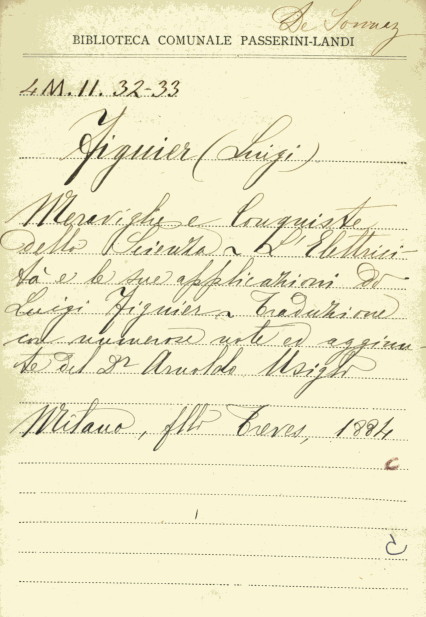 De Sonnaz
BIBLIOTECA COMUNALE PASSERINI-LANDI
4 M. 11. 32-33
Figuier (Luigi)
Meraviglie e Conquiste
della Scienza ~ L'Elettrici-
tà e le sue applicazioni Di
Luigi Figuier ~ Traduzione
con numerose note ed aggiun-
te del Dr Arnoldo Usigli
Milano, flli Treves, 1884